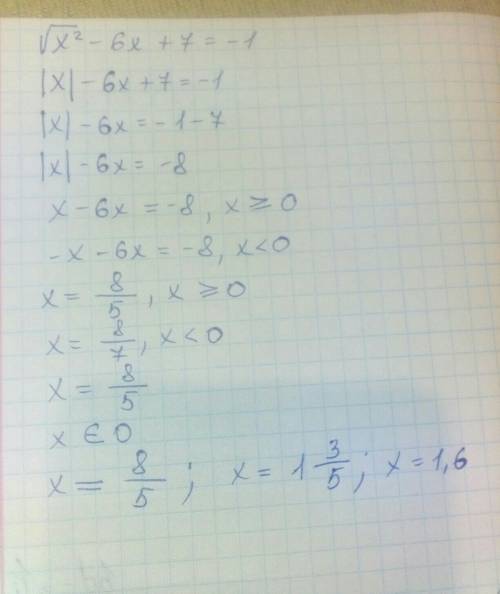 √x² - 6x + 7 = -1
|x| - 6x + 7 = -1
|x| - 6x = -1 - 7
|x| - 6x = -8
x - 6x = -8, x ≥ 0
-x - 6x = -8, x < 0
x = 8/5, x ≥ 0
x = 8/7, x < 0
x = 8/5
x ∈ 0
x = 8/5; x = 1 3/5; x = 1,6